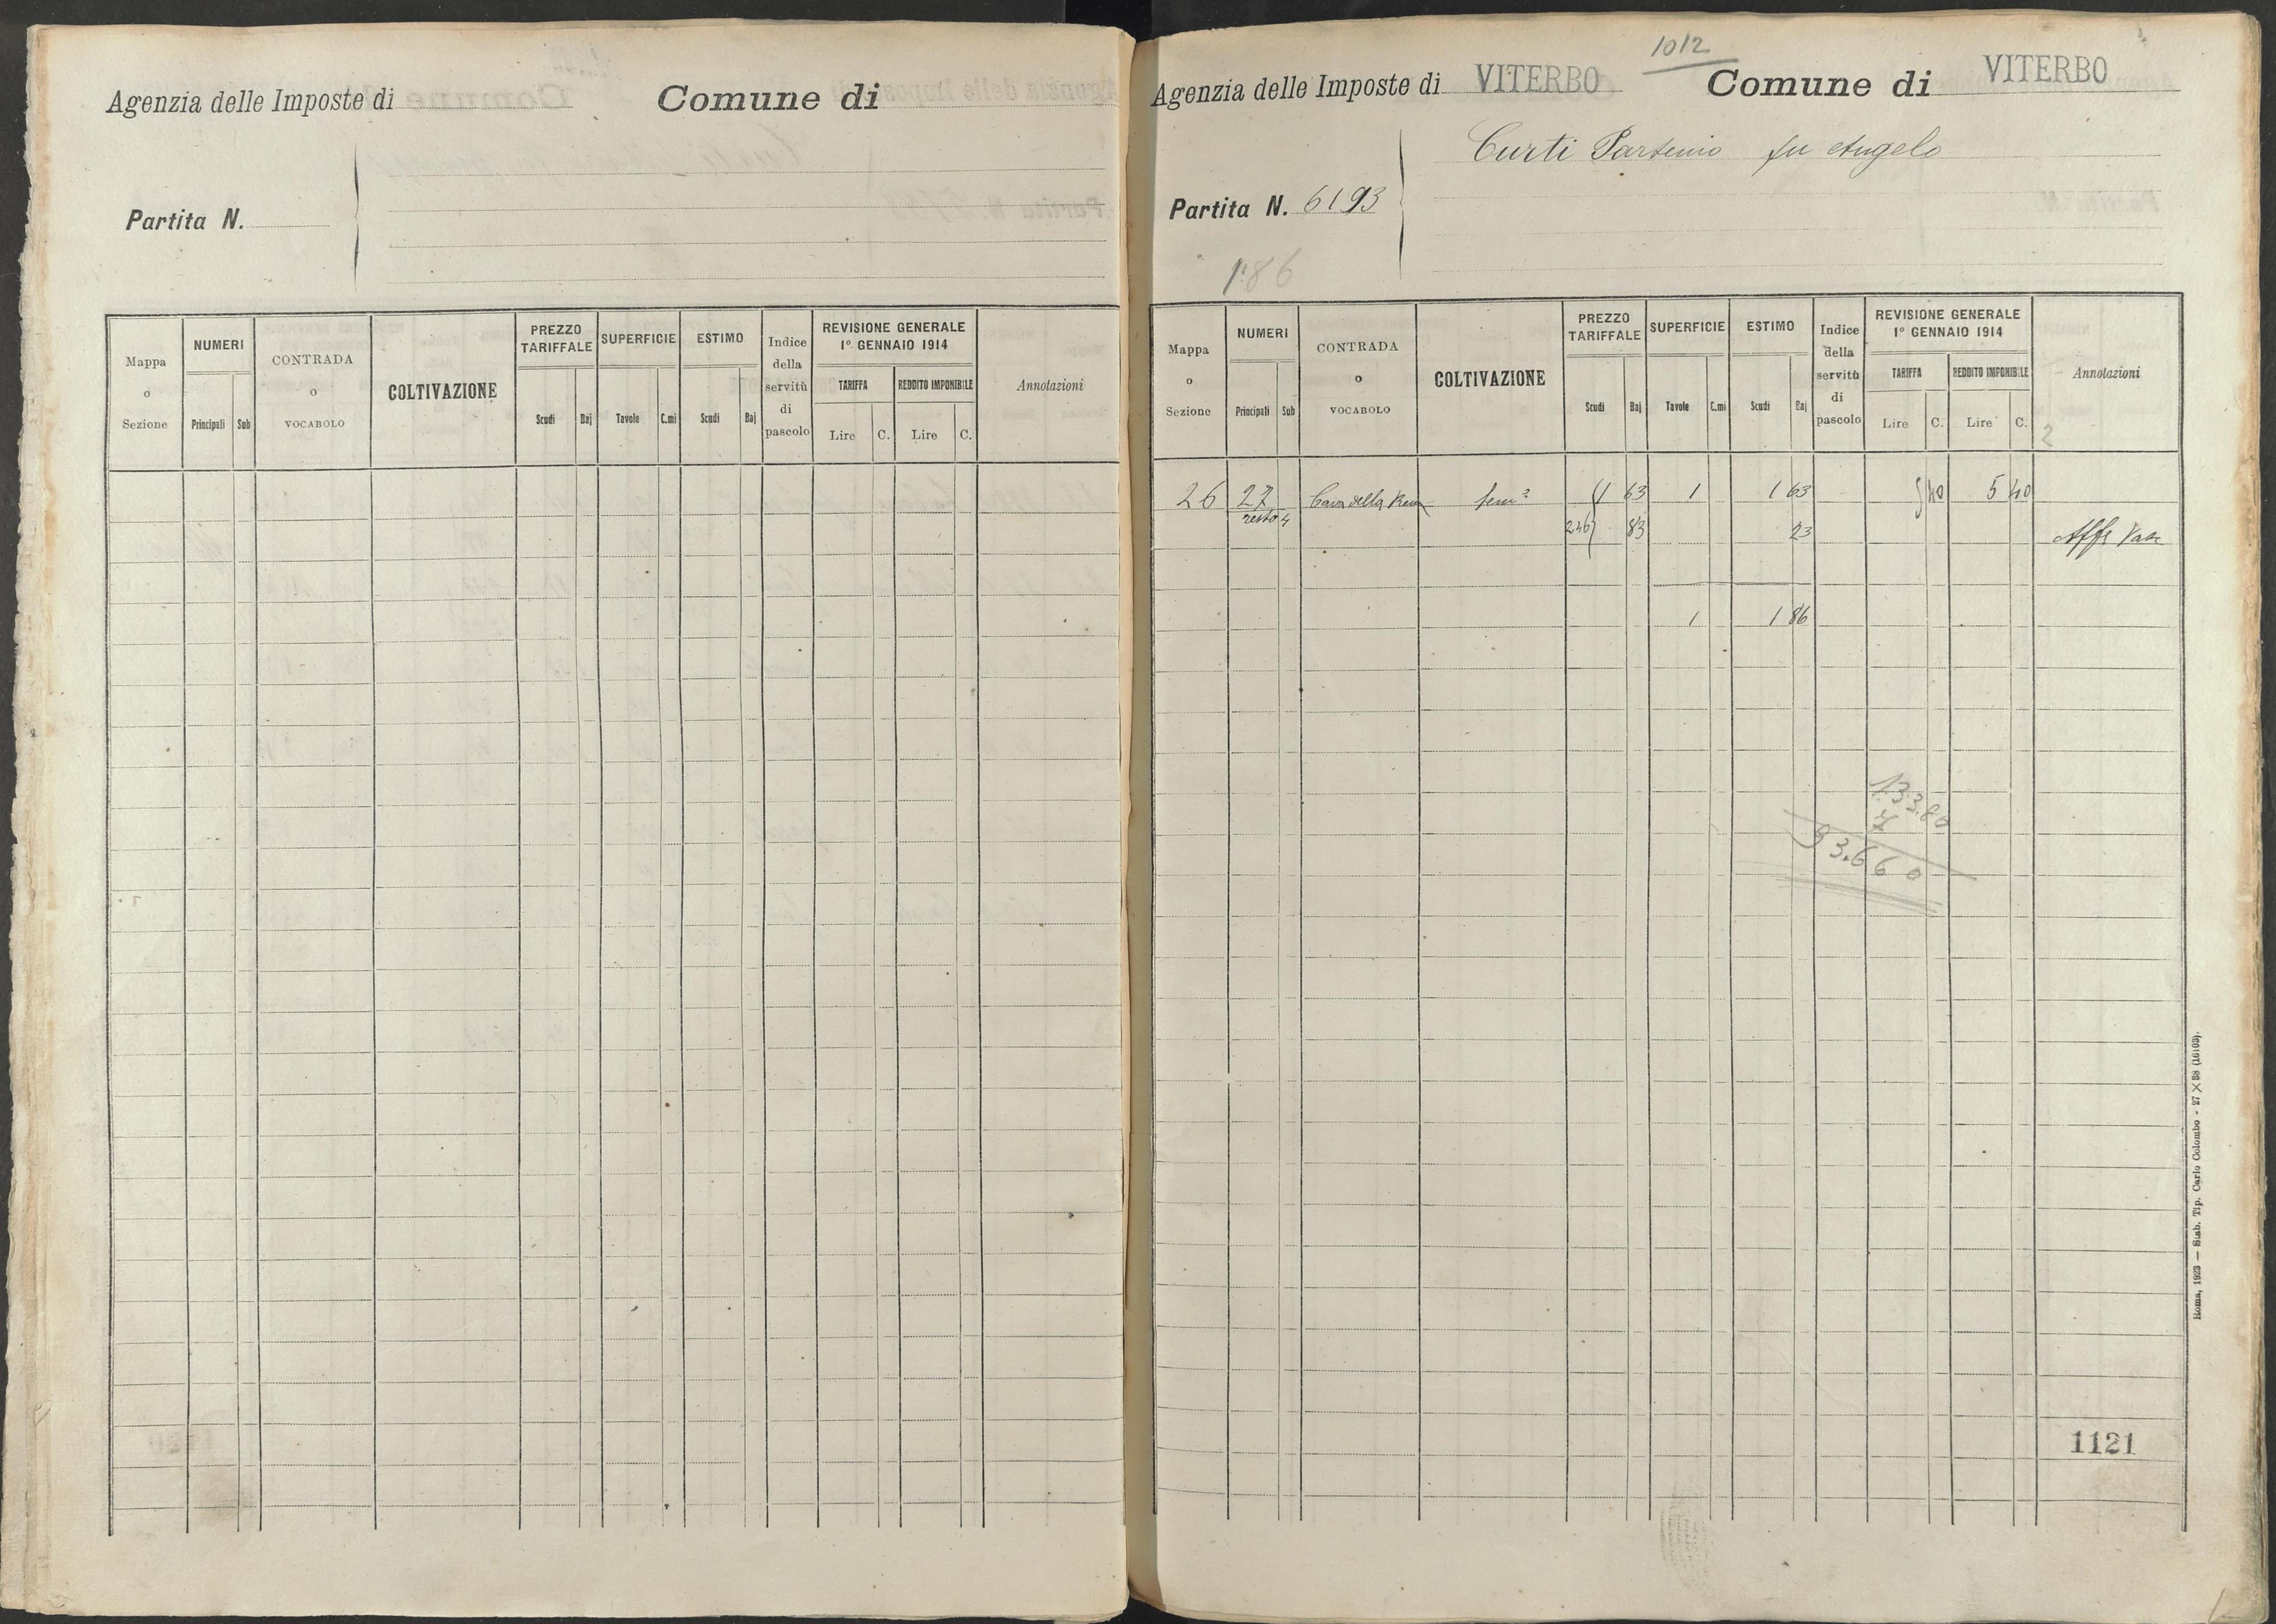 Agenzia delle Imposte di Comune di
Partita N.
Mappa o Sezione
NUMERI
Principali Sub
CONTRADA o VOCABOLO
COLTIVAZIONE
PREZZO TARIFFALE
Scudi Baj
SUPERFICIE
Tavole C.mi
ESTIMO
Scudi Baj
Indice della servitù di pascolo
REVISIONE GENERALE
1° GENNAIO 1914
TARIFFA
Lire C.
REDDITO IMPONIBILE
Lire C.
Annotazioni
1012
Agenzia delle Imposte di VITERBO Comune di VITERBO
Curti Partenio fu Angelo
Partita N. 6193
1:86
Mappa o Sezione
NUMERI
Principali Sub
CONTRADA o VOCABOLO
COLTIVAZIONE
PREZZO TARIFFALE
Scudi Baj
SUPERFICIE
Tavole C.mi
ESTIMO
Scudi Baj
Indice della servitù di pascolo
REVISIONE GENERALE
1° GENNAIO 1914
TARIFFA
Lire C.
REDDITO IMPONIBILE
Lire C.
Annotazioni
2
26 27 Cava della 1 63 1 1 63 5 40 5 40
resto 4 246 83 23
1 1 86
133.80
7
93.660
1121
Roma, 1923 — Stab. Tip. Carlo Colombo - 27 X 38 (16103).